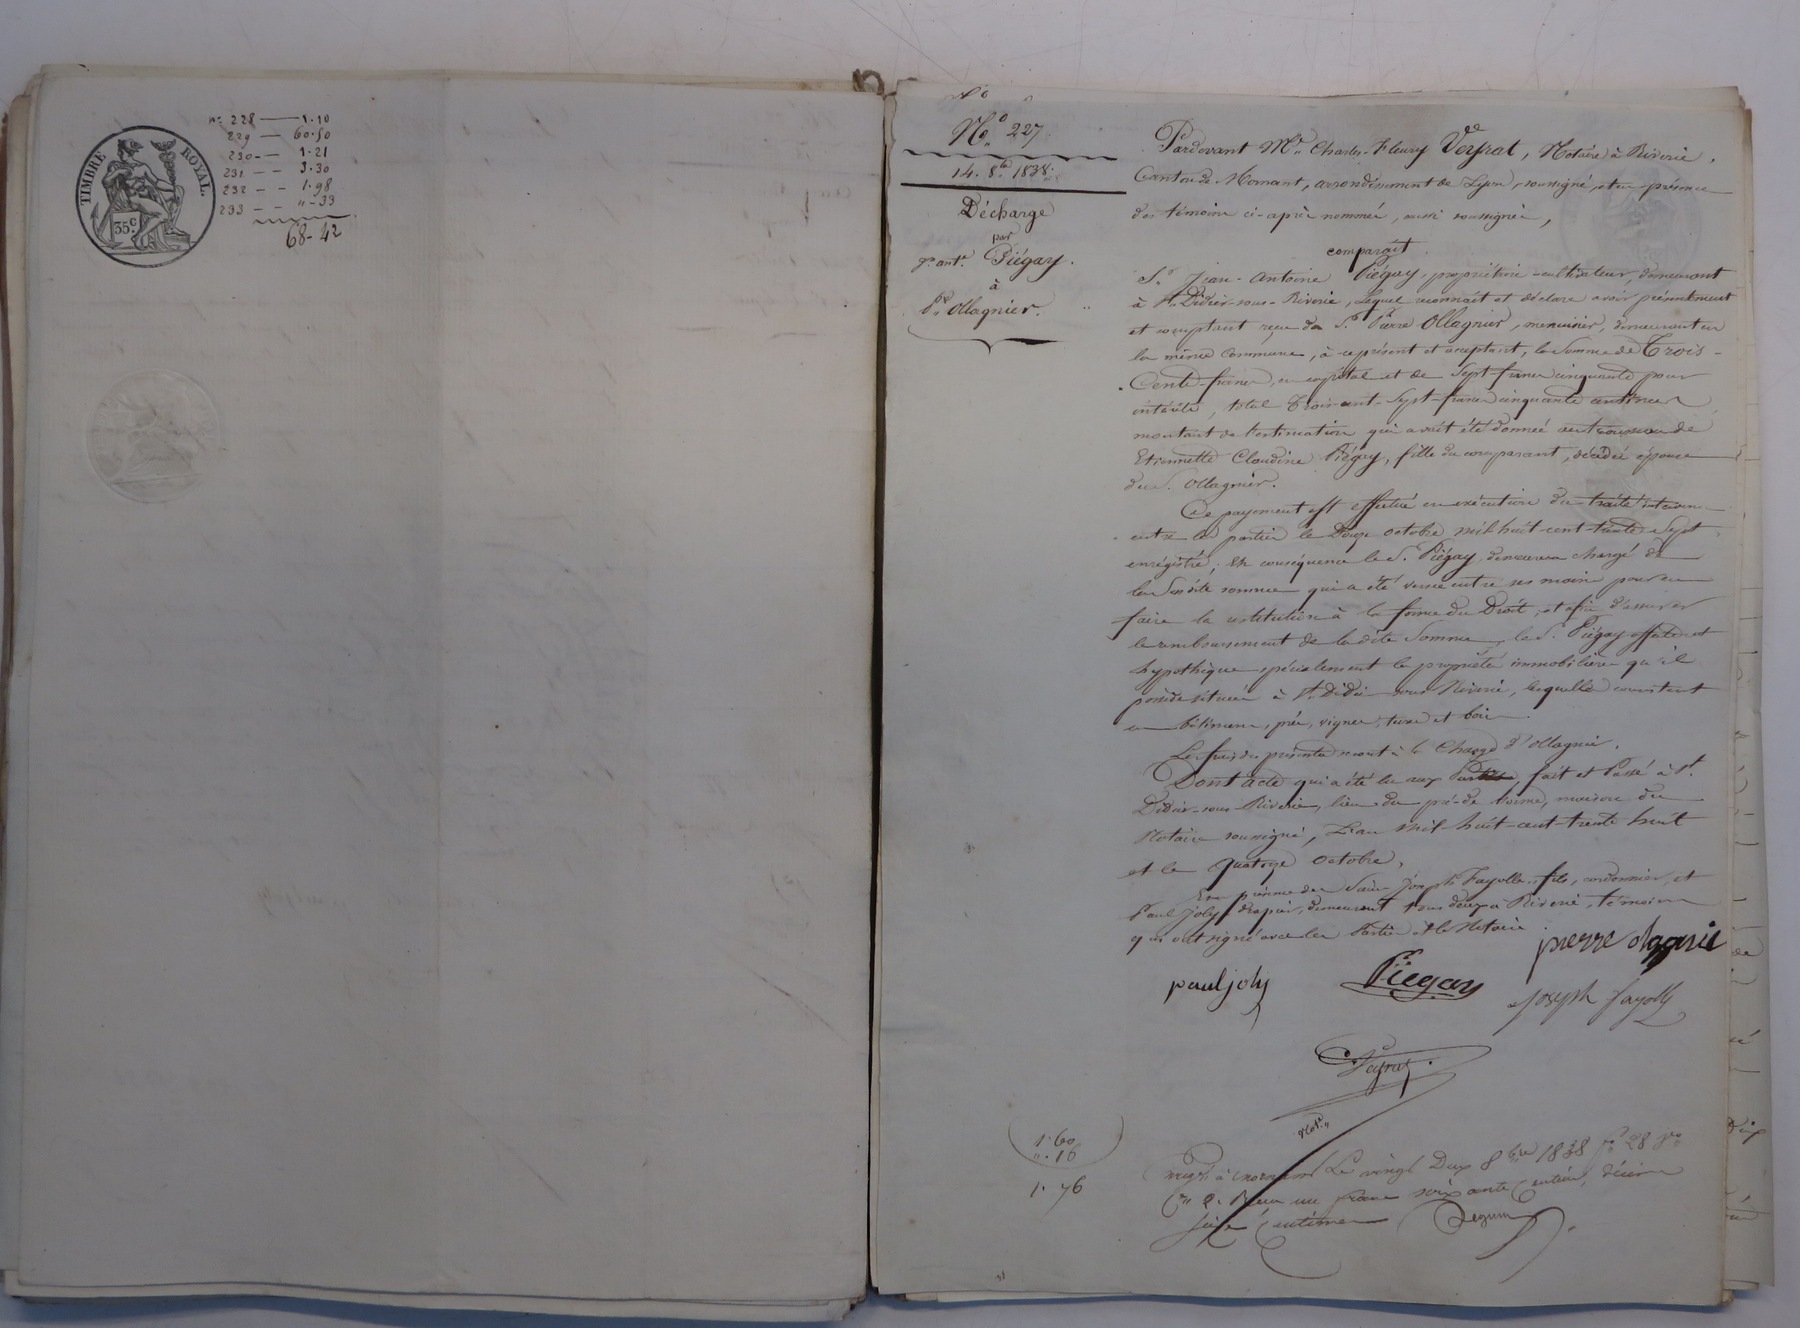 TIMBRE ROYAL
35 c.
n.° 228 — 1.10
229 — 60.50
230 - — 1.21
231 — 3.30
232 - - 1.98
233 - - "-33
68-42
N.° 227.
14. 8.bre 1838.
Décharge
par
Jn. ant.e Piégay.
à
P.re Ollagnier.
Pardevant M.e Charles-Fleury Veyrat, Notaire à Riverie,
Canton de Mornant, arrondissement de Lyon, soussigné, et en présence
des témoins ci-après nommés, aussi soussignés,
comparait
S.r Jean-Antoine Piégay, propriétaire-cultivateur, demeurant
à St. Didier-sous-Riverie, lequel reconnait et déclare avoir présentement
et comptant reçu du S.r Pierre Ollagnier, menuisier, demeurant en
la même commune, à ce présent et acceptant, la somme de Trois-
Cents-francs, en capital et de Sept-francs cinquante pour
intérêts, total Trois-cent-Sept-francs cinquante centimes
montant de l'estimation qui avait été donnée au trousseau de
Etiennette Claudine Piégay, fille du comparant, décédée épouse
du S. Ollagnier.
Ce payement est effectué en exécution du traité intervenu
entre les parties le Douze octobre mil huit-cent-trente-Sept
enrégistré; En conséquence le S. Piégay demeurera chargé de
la susdite somme qui a été versée entre ses mains pour en
faire la restitution à la forme du Droit, et afin d'assurer
le remboursement de la dite Somme, le S. Piégay affecte et
hypothèque spécialement les propriétés immobilières qu'il
possède situées à St. Didier sous Riverie, lesquelles consistent
en bâtimens, prés, vignes, terres et bois.
Les frais des présentes seront à la Charge d'Ollagnier.
Dont acte qui a été lu aux Parties, fait et Passé à St.
Didier-sous-Riverie, lieu du pré-de, maison du
Notaire soussigné, L'an Mil-huit-cent-trente huit
et le Quatorze octobre,
En présence des Sieurs Joseph Fayolle, fils, cordonnier, et
Paul Joly, drapier, demeurant tous deux à Riverie, témoins
qui ont signé avec les Parties et le Notaire.
pierre olagnié
paul joly
Piegay
joseph fayolle
Veyrat
Not.re
1.60
".16
1.76
Enregé à mornant Le vingt Deux 8bre 1838 f.° 28 v.°
C.e 2. Reçu un franc soixante Centimes, décime
seize Centimes